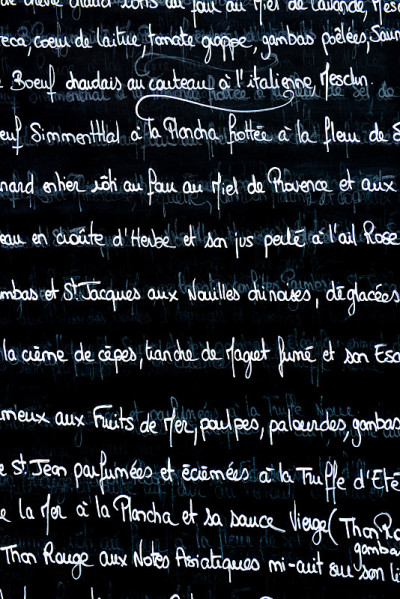 de chèvre chaud rôtis au four au Miel de Lavande, Mes
eca, coeur de laitue, tomate grappe, gambas poêlées, Saum
Boeuf chaudais au couteau à l'italienne, Mesclun.
euf Simmenthal à la Plancha frottée à la fleur de S
nard entier rôti au four au Miel de Provence et aux
eau en croûte d'Herbe et son jus perlé à l'ail Rose
mbas et St Jacques aux Nouilles chinoises, déglacées
la crème de cèpes, tranche de Magret fumé et son Esc
meux aux Fruits de Mer, poulpes, palourdes, gambas
e St. Jean parfumées et écrémées à la Truffe d'Eté
e la Mer à la Plancha et sa sauce Vierge (Thon Ro
gambas
Thon Rouge aux Notes Asiatiques mi-cuit sur son li